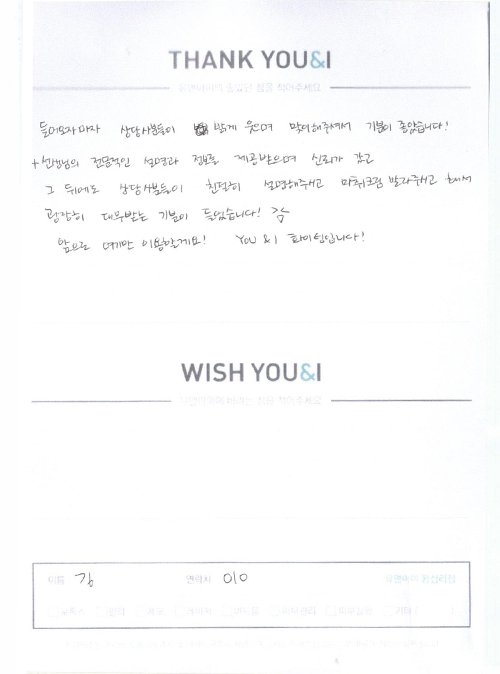 THANK YOU&I
유앤아이의 좋았던 점을 적어주세요
들어오자마자 상담사분들이 밝게 웃으며 맞이해주셔서 기분이 좋았습니다!
+ 선생님의 전문적인 설명과 정보를 제공받으며 신뢰가 갔고
그 뒤에도 상담사분들이 친절히 설명해주시고 마취크림 발라주시고 해서
굉장히 대우받는 기분이 들었습니다!
앞으로 여기만 이용할게요! You & I 화이팅입니다!
WISH YOU&I
유앤아이에 바라는 점을 적어주세요
이름 김 연락처 010 유앤아이 왕십리점
보톡스 필러 제모 레이저 여드름 피부관리 기타